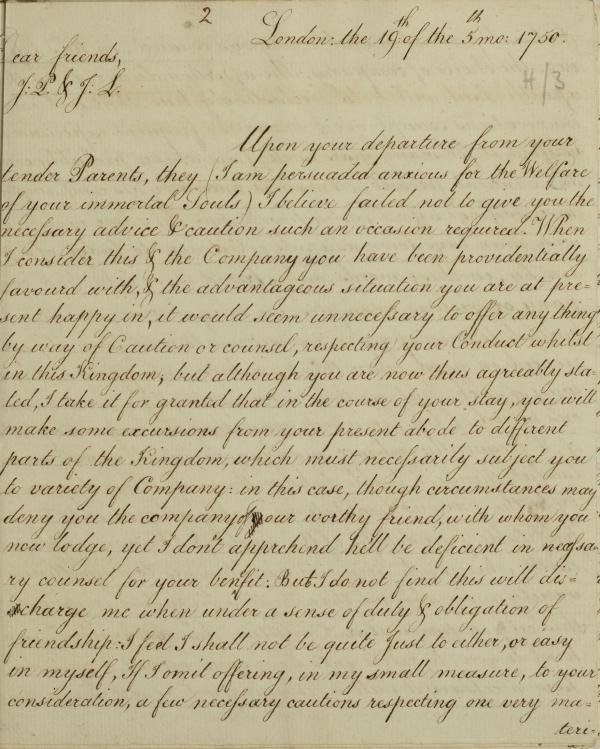 2
London: the 19th: of the 5th mo: 1750.
Dear friends,
J: P. & J: L.
H/3
Upon your departure from your
tender Parents, they (I am persuaded anxious for the Welfare
of your immortal Souls) I believe failed not to give you the
necessary advice & caution such an occasion required. When
I consider this & the Company you have been providentially
favourd with, & the advantageous situation you are at pre=
sent happy in, it would seem unnecessary to offer any thing
by way of Caution or counsel, respecting your Conduct whilst
in this Kingdom; but although you are now thus agreeably sta-
ted, I take it for granted that in the course of your stay, you will
make some excursions from your present abode to different
parts of the Kingdom, which must necessarily subject you
to variety of Company: in this case, though circumstances may
deny you the company of our worthy friend, with whom you
now lodge, yet I don't apprehend he'll be deficient in necessa-
ry counsel for your benfit. But I do not find this will dis=
charge me when under a sense of duty & obligation of
friendship: I feel I shall not be quite Just to either, or easy
in myself, If I omit offering, in my small measure, to your
consideration, a few necessary cautions respecting one very ma=
teri-